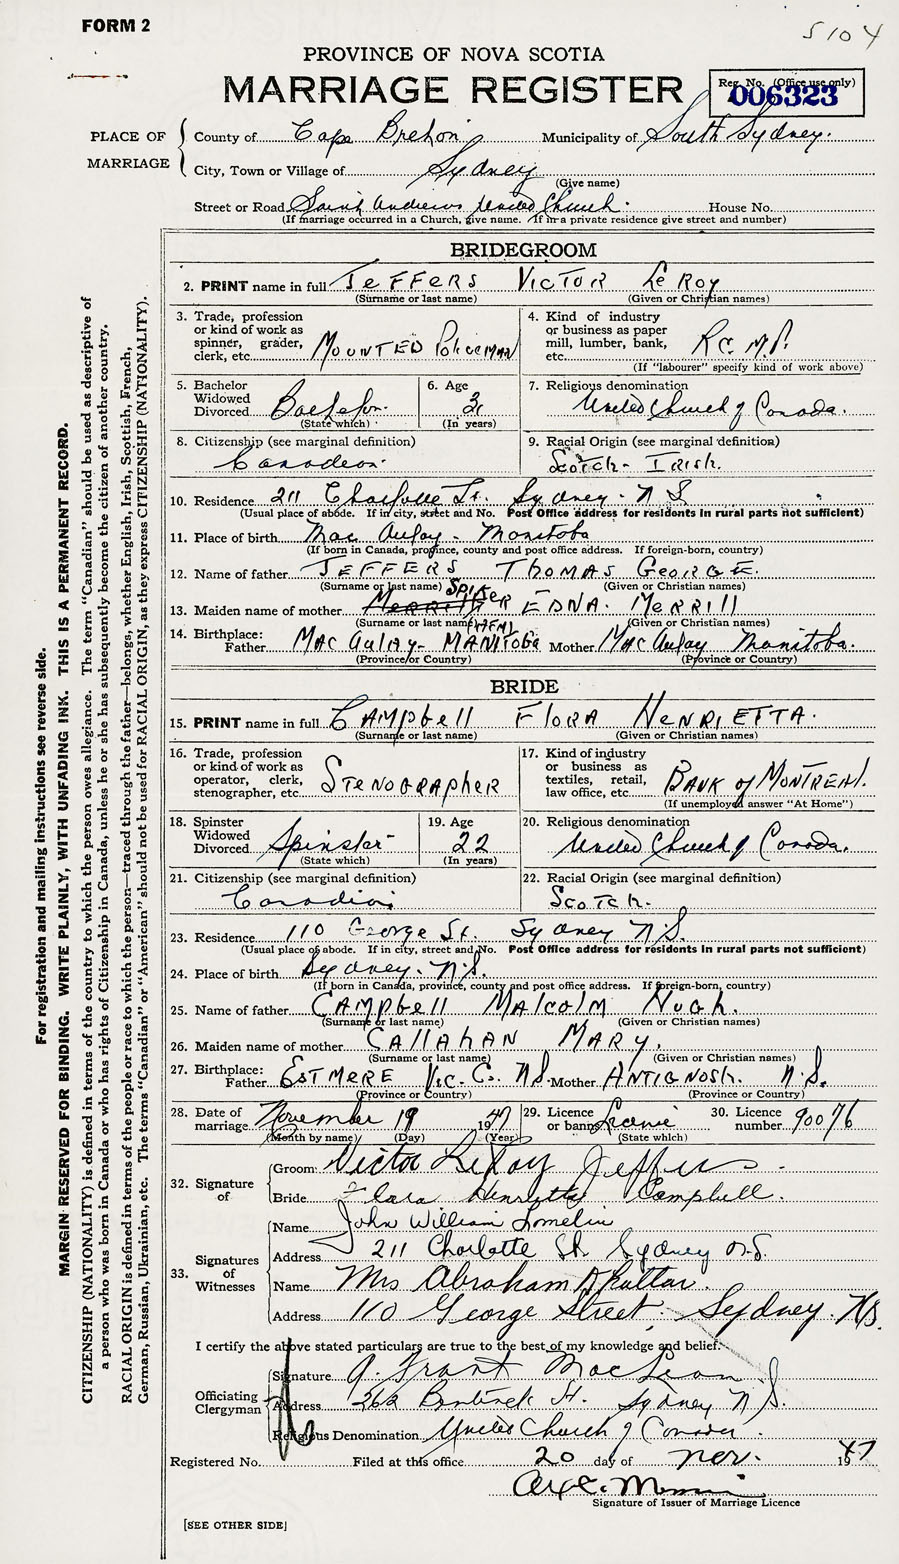 FORM 2
5104
PROVINCE OF NOVA SCOTIA
MARRIAGE REGISTER
Reg. No. (Office use only)
006323
PLACE OF MARRIAGE
County of Cape Breton Municipality of South Sydney.
City, Town or Village of Sydney
(Give name)
Street or Road Saint Andrews United Church. House No.
(If marriage occurred in a Church, give name. If in a private residence give street and number)
BRIDEGROOM
2. PRINT name in full JEFFERS VICTOR LE ROY
(Surname or last name) (Given or Christian names)
3. Trade, profession or kind of work as spinner, grader, clerk, etc. MOUNTED POLICEMAN
4. Kind of industry or business as paper mill, lumber, bank, etc. R.C.M.P.
(If "labourer" specify kind of work above)
5. Bachelor Widowed Divorced Bachelor.
(State which)
6. Age
(In years)
7. Religious denomination United Church of Canada.
8. Citizenship (see marginal definition) Canadian.
9. Racial Origin (see marginal definition) Scotch - Irish.
10. Residence 211 Charlotte St. Sydney - N S
(Usual place of abode. If in city, street and No. Post Office address for residents in rural parts not sufficient)
11. Place of birth Mac Aulay - Manitoba
(If born in Canada, province, county and post office address. If foreign-born, country)
12. Name of father JEFFERS THOMAS GEORGE.
(Surname or last name) (Given or Christian names)
13. Maiden name of mother SPICER EDNA. MERRILL
(Surname or last name) (Given or Christian names)
14. Birthplace: Father MAC AULAY - MANITOBA Mother MAC Aulay Manitoba.
(Province or Country) (Province or Country)
BRIDE
15. PRINT name in full CAMPBELL FLORA HENRIETTA.
(Surname or last name) (Given or Christian names)
16. Trade, profession or kind of work as operator, clerk, stenographer, etc. STENOGRAPHER
17. Kind of industry or business as textiles, retail, law office, etc. BANK of MONTREAL.
(If unemployed answer "At Home")
18. Spinster Widowed Divorced Spinster
(State which)
19. Age 22
(In years)
20. Religious denomination United Church of Canada.
21. Citizenship (see marginal definition) Canadian
22. Racial Origin (see marginal definition) SCOTCH.
23. Residence 110 George St. Sydney N S.
(Usual place of abode. If in city, street and No. Post Office address for residents in rural parts not sufficient)
24. Place of birth Sydney - N.S.
(If born in Canada, province, county and post office address. If foreign-born, country)
25. Name of father CAMPBELL MALCOLM HUGH.
(Surname or last name) (Given or Christian names)
26. Maiden name of mother CALLAHAN MARY.
(Surname or last name) (Given or Christian names)
27. Birthplace: Father ESTMERE VIC. CO. N.S. Mother ANTIGNOSH. N.S.
(Province or Country) (Province or Country)
28. Date of marriage November 19 1947
(Month by name) (Day) (Year)
29. Licence or banns Licence
(State which)
30. Licence number 90076
32. Signature of
Groom: Victor LeRoy Jeffers
Bride Flora Henrietta Campbell.
33. Signatures of Witnesses
Name John William
Address 211 Charlotte St. Sydney N.S.
Name Mrs Abraham
Address 110 George Street, Sydney. N.S.
I certify the above stated particulars are true to the best of my knowledge and belief.
Officiating Clergyman
Signature A. Frant MacLean
Address 262 Bentinck St. Sydney N S.
Religious Denomination United Church of Canada.
Registered No. Filed at this office 20 day of Nov. 1947
Signature of Issuer of Marriage Licence
[SEE OTHER SIDE]
For registration and mailing instructions see reverse side.
MARGIN RESERVED FOR BINDING. WRITE PLAINLY, WITH UNFADING INK. THIS IS A PERMANENT RECORD.
CITIZENSHIP (NATIONALITY) is defined in terms of the country to which the person owes allegiance. The term "Canadian" should be used as descriptive of
a person who was born in Canada or who has rights of Citizenship in Canada, unless he or she has subsequently become the citizen of another country.
RACIAL ORIGIN is defined in terms of the people or race to which the person—traced through the father—belongs, whether English, Irish, Scottish, French,
German, Russian, Ukrainian, etc. The terms "Canadian" or "American" should not be used for RACIAL ORIGIN, as they express CITIZENSHIP (NATIONALITY).